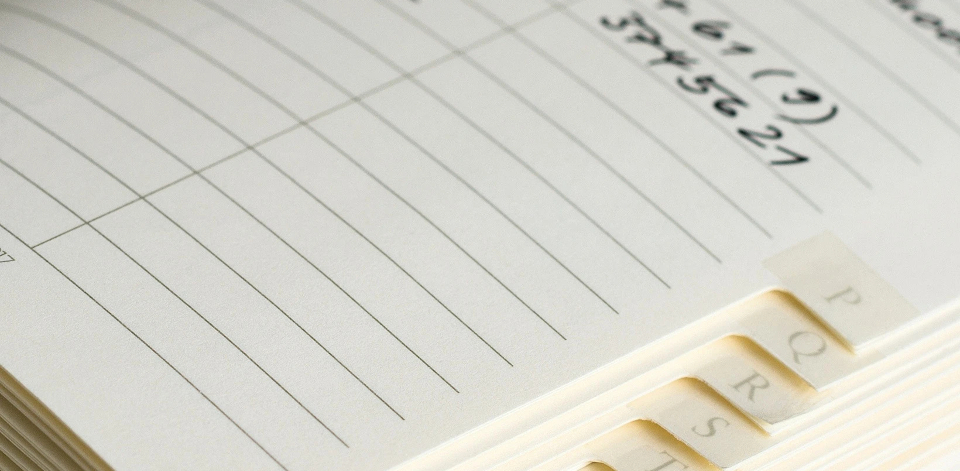 + 61 (9)
374 56 21
P
Q
R
S
T